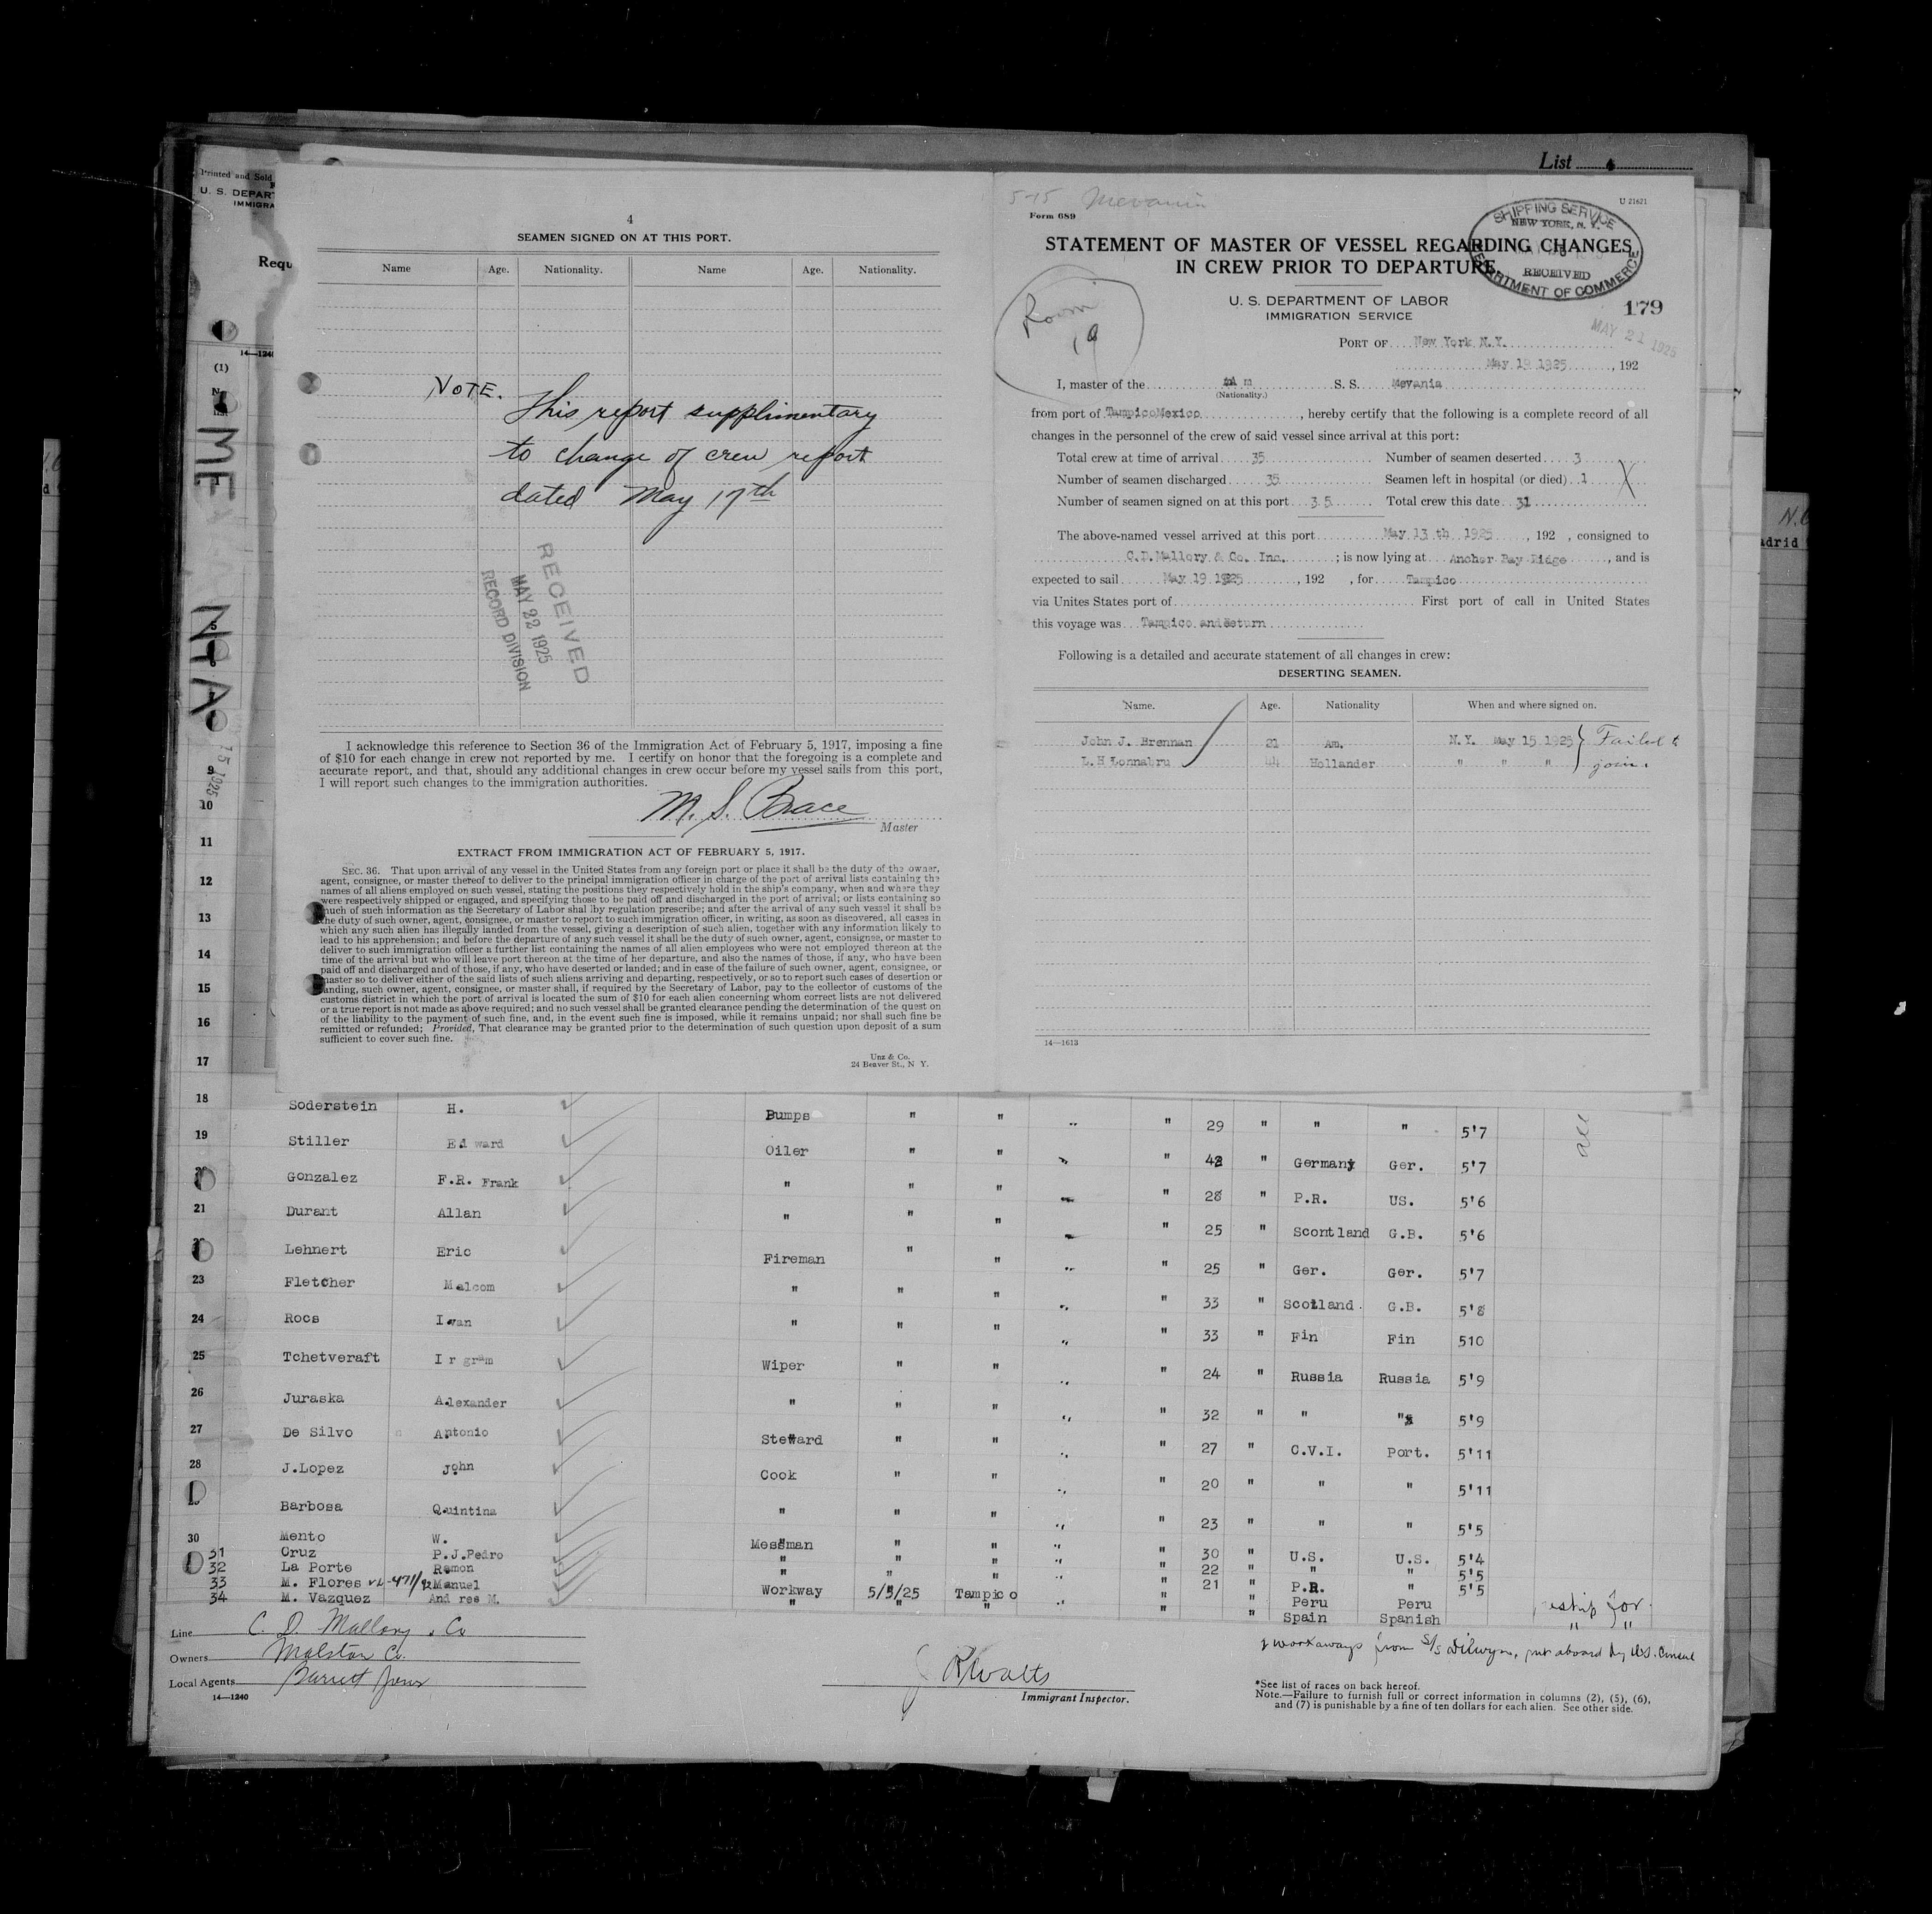 List 4
Printed and Sold
U. S. DEPART
IMMIGRA
Requ
14—1240
(1)
4
SEAMEN SIGNED ON AT THIS PORT.
Name Age. Nationality. Name Age. Nationality.
NOTE.
This report supplimentary
to change of crew report
dated May 17th
RECEIVED
MAY 22 1925
RECORD DIVISION
I acknowledge this reference to Section 36 of the Immigration Act of February 5, 1917, imposing a fine
of $10 for each change in crew not reported by me. I certify on honor that the foregoing is a complete and
accurate report, and that, should any additional changes in crew occur before my vessel sails from this port,
I will report such changes to the immigration authorities.
M. S. Brace
Master
EXTRACT FROM IMMIGRATION ACT OF FEBRUARY 5, 1917.
SEC. 36. That upon arrival of any vessel in the United States from any foreign port or place it shall be the duty of the owner,
agent, consignee, or master thereof to deliver to the principal immigration officer in charge of the port of arrival lists containing the
names of all aliens employed on such vessel, stating the positions they respectively hold in the ship's company, when and where they
were respectively shipped or engaged, and specifying those to be paid off and discharged in the port of arrival; or lists containing so
much of such information as the Secretary of Labor shal lby regulation prescribe; and after the arrival of any such vessel it shall be
the duty of such owner, agent, consignee, or master to report to such immigration officer, in writing, as soon as discovered, all cases in
which any such alien has illegally landed from the vessel, giving a description of such alien, together with any information likely to
lead to his apprehension; and before the departure of any such vessel it shall be the duty of such owner, agent, consignee, or master to
deliver to such immigration officer a further list containing the names of all alien employees who were not employed thereon at the
time of the arrival but who will leave port thereon at the time of her departure, and also the names of those, if any, who have been
paid off and discharged and of those, if any, who have deserted or landed; and in case of the failure of such owner, agent, consignee, or
master so to deliver either of the said lists of such aliens arriving and departing, respectively, or so to report such cases of desertion or
landing, such owner, agent, consignee, or master shall, if required by the Secretary of Labor, pay to the collector of customs of the
customs district in which the port of arrival is located the sum of $10 for each alien concerning whom correct lists are not delivered
or a true report is not made as above required; and no such vessel shall be granted clearance pending the determination of the quest on
of the liability to the payment of such fine, and, in the event such fine is imposed, while it remains unpaid; nor shall such fine be
remitted or refunded; Provided, That clearance may be granted prior to the determination of such question upon deposit of a sum
sufficient to cover such fine.
Unz & Co.
24 Beaver St., N Y.
5-15 Mevania
Form 689
U 21621
SHIPPING SERVICE
NEW YORK, N. Y.
RECEIVED
DEPARTMENT OF COMMERCE
STATEMENT OF MASTER OF VESSEL REGARDING CHANGES
IN CREW PRIOR TO DEPARTURE
Room
19
U. S. DEPARTMENT OF LABOR
IMMIGRATION SERVICE
179
MAY 21 1925
PORT OF New York N.Y.
May 19 1925, 192
I, master of the Am S. S. Mevania
(Nationality.)
from port of TampicoMexico, hereby certify that the following is a complete record of all
changes in the personnel of the crew of said vessel since arrival at this port:
Total crew at time of arrival 35 Number of seamen deserted 3
Number of seamen discharged 35 Seamen left in hospital (or died) 1 X
Number of seamen signed on at this port 35 Total crew this date 31
The above-named vessel arrived at this port May 13 th 1925, 192 , consigned to
C.D.Mallory & Co. Inc. ; is now lying at Anchor Bay Ridge, and is
expected to sail May 19 1925, 192 , for Tampico
via Unites States port of First port of call in United States
this voyage was Tampico andReturn
Following is a detailed and accurate statement of all changes in crew:
DESERTING SEAMEN.
Name. Age. Nationality When and where signed on.
John J. Brennan 21 Am. N.Y. May 15 1925 } Failed to
L.H Lonnabru 44 Hollander " " " } join.
14—1613
9
10
11
12
13
14
15
16
17
18 Soderstein H. Bumps " " " " 29 " " " 5'7
19 Stiller Edward Oiler " " " " 42 " Germany Ger. 5'7
Gonzalez F.R. Frank " " " " " 28 " P.R. US. 5'6
21 Durant Allan " " " " " 25 " Scontland G.B. 5'6
Lehnert Eric Fireman " " " " 25 " Ger. Ger. 5'7
23 Fletcher Malcom " " " " " 33 " Scotland. G.B. 5'8
24 Rocs Ivan " " " " " 33 " Fin Fin 510
25 Tchetveraft Wiper " " " " 24 " Russia Russia 5'9
26 Juraska Alexander " " " " " 32 " " " 5'9
27 De Silvo Antonio Steward " " " " 27 " C.V.I. Port. 5'11
28 J.Lopez John Cook " " " " 20 " " " 5'11
Barbosa Quintina " " " " " 23 " " " 5'5
30 Mento W. Messman " " " " 30 " U.S. U.S. 5'4
31 Cruz P.J.Pedro " " " " " 22 " " " 5'5
32 La Porte Ramon " " " " " 21 " P.R. " 5'5
33 M. Flores Manuel Workway 5/5/25 Tampico " " " Peru Peru
34 M. Vazquez Andres M. " " " " " Spain Spanish
Line C. D. Mallory & Co
Owners Malston Co.
Local Agents Barrett
14—1240
Immigrant Inspector.
workaways from S/S Dilwyn, put aboard by U.S. Consul
*See list of races on back hereof.
Note.—Failure to furnish full or correct information in columns (2), (5), (6),
and (7) is punishable by a fine of ten dollars for each alien. See other side.